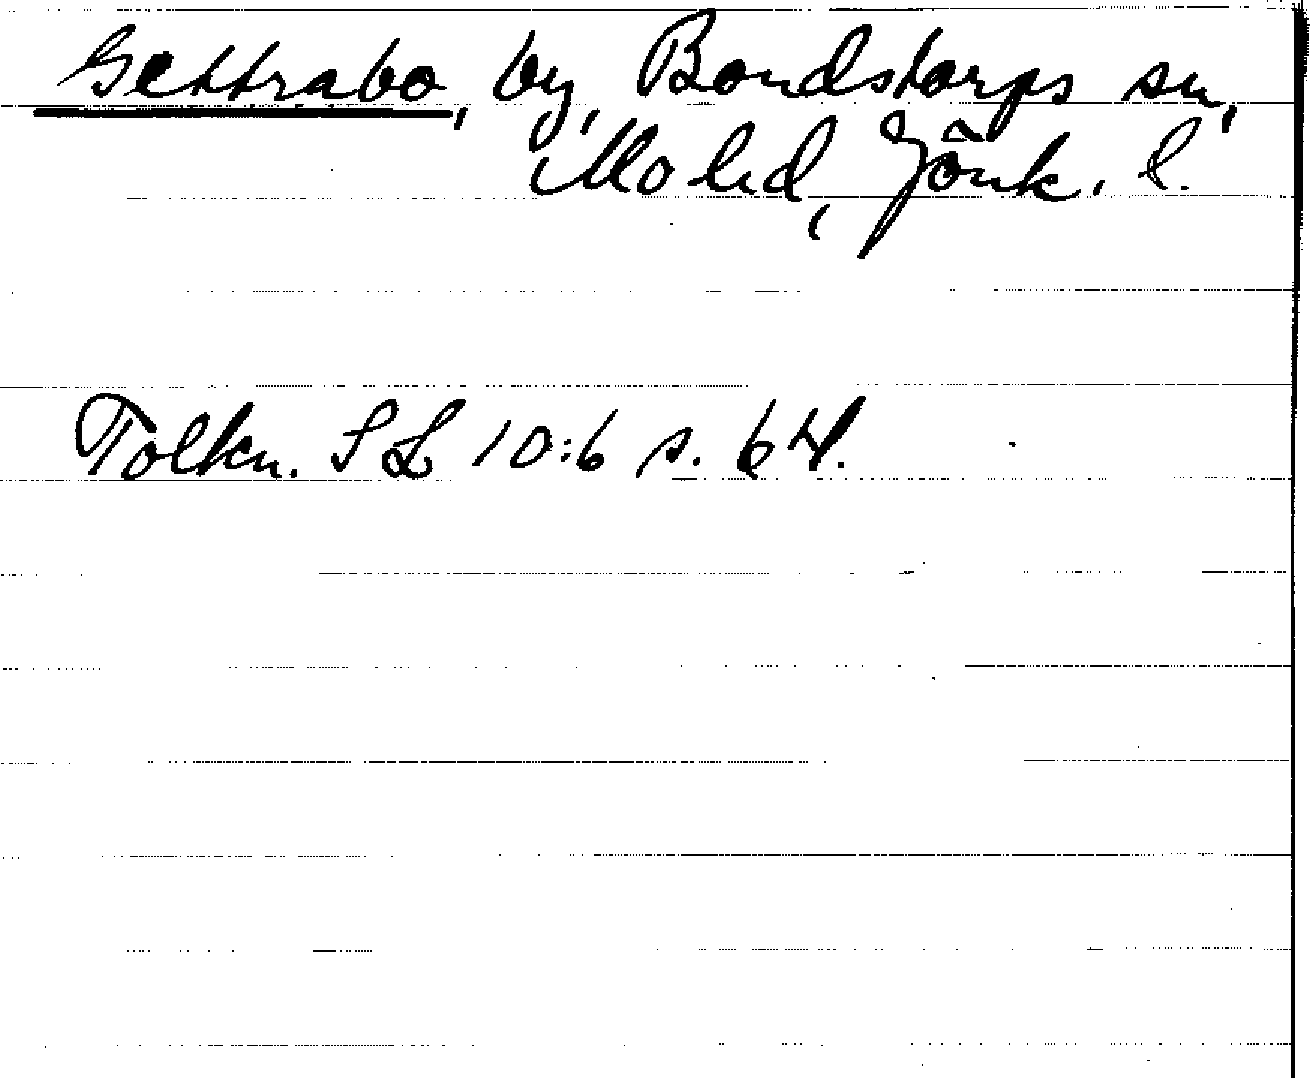 Gettrabo, by, Bondstorps sn,
Mo hd, Jönk. l.
Tolkn. SL 10:6 s. 64.